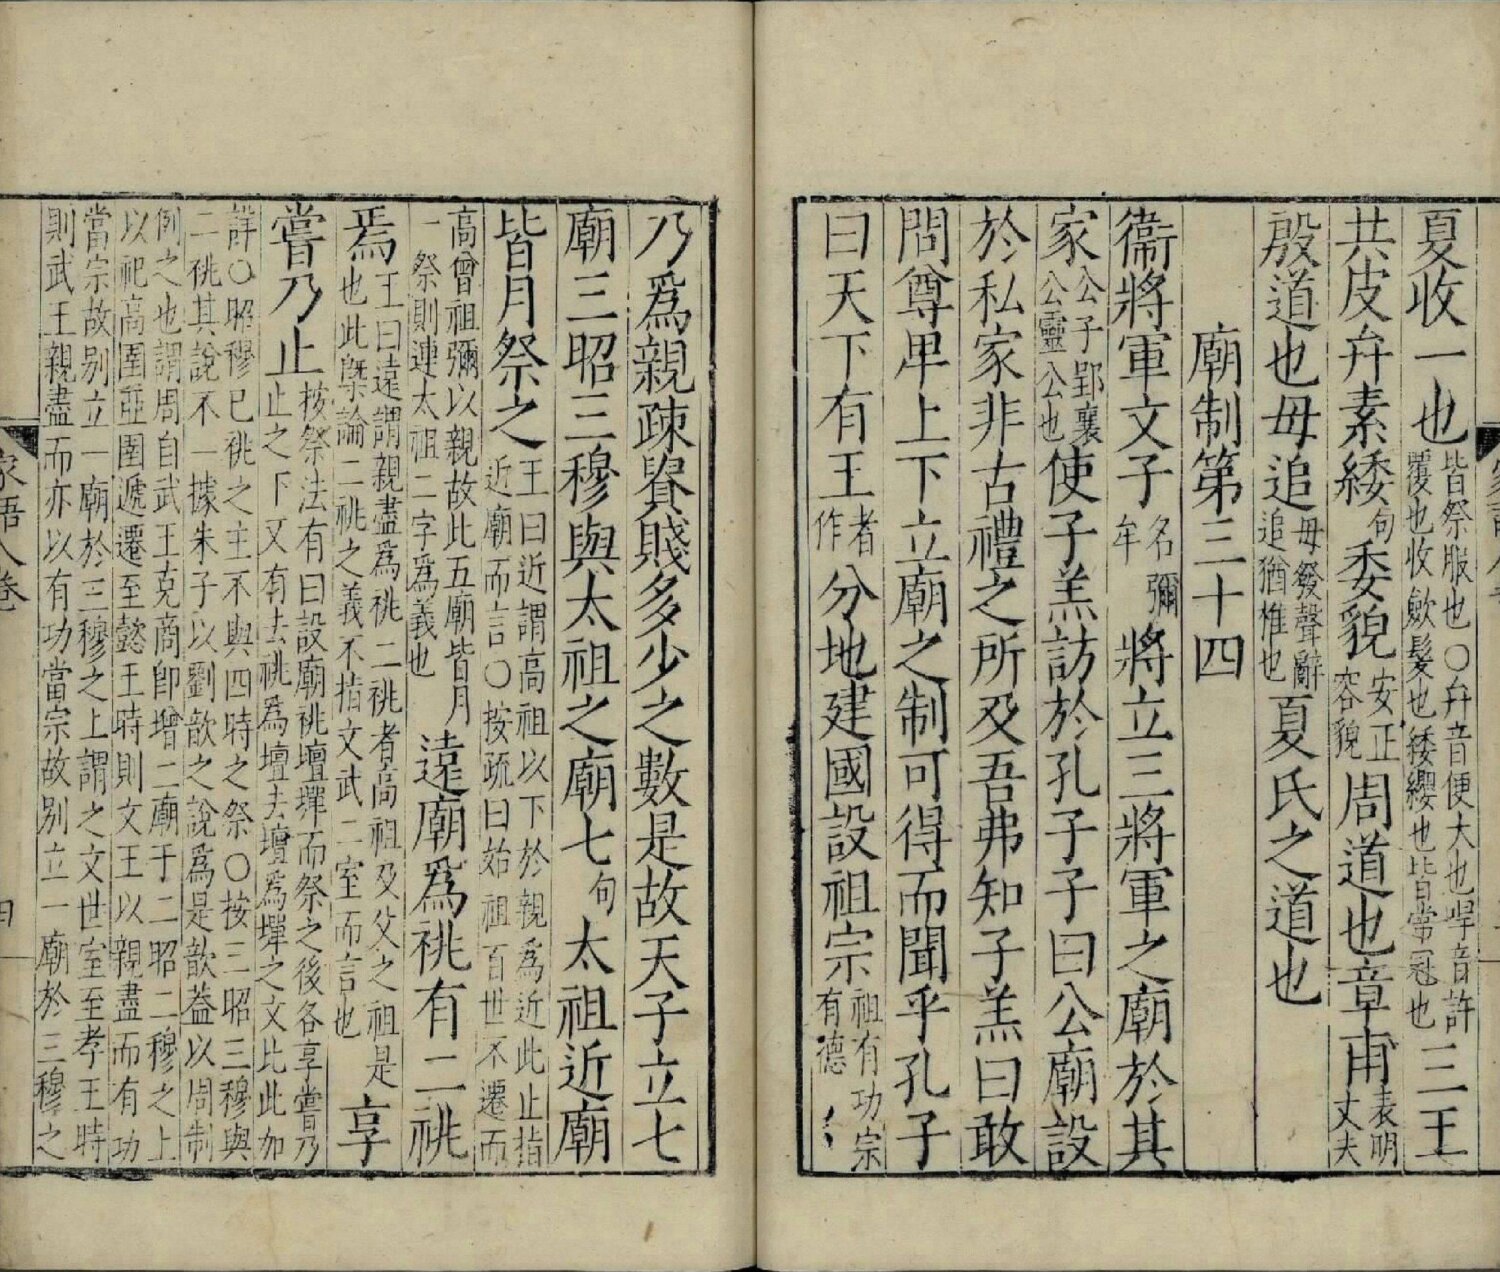 夏收一也皆祭服也○弁音便大也哻音許覆也收歛髮也緌纓也皆常冠也三王
共皮弁素緌句委貌安正容貌周道也章甫表明丈夫
殷道也毋追毋發聲辭追猶椎也夏氏之道也
廟制第三十四
衞將軍文子名彌牟將立三將軍之廟於其
家公子郢襄公靈公也使子羔訪於孔子子曰公廟設
於私家非古禮之所及吾弗知子羔曰敢
問尊卑上下立廟之制可得而聞乎孔子
曰天下有王者作分地建國設祖宗祖有功宗有德
乃爲親疎貴賤多少之數是故天子立七
廟三昭三穆與太祖之廟七句太祖近廟
皆月祭之王曰近謂高祖以下於親爲近此止指近廟而言○按疏曰始祖百世不遷而
高曾祖彌以親故此五廟皆月一祭則連太祖二字爲義也遠廟爲祧有二祧
焉王曰遠謂親盡爲祧二祧者高祖及父之祖是也此槩論二祧之義不指文武二室而言也享
嘗乃止按祭法有曰設廟祧壇墠而祭之後各享嘗乃止之下又有去祧爲壇去壇爲墠之文比此如
詳○昭穆已祧之主不與四時之祭○按三昭三穆與
二祧其說不一據朱子以劉歆之說爲是歆葢以周制
例之也謂周自武王克商卽增二廟于二昭二穆之上
以祀高圉亞圉遞遷至懿王時則文王以親盡而有功
當宗故别立一廟於三穆之上謂之文世室至孝王時
則武王親盡而亦以有功當宗故别立一廟於三穆之
家語八卷
四